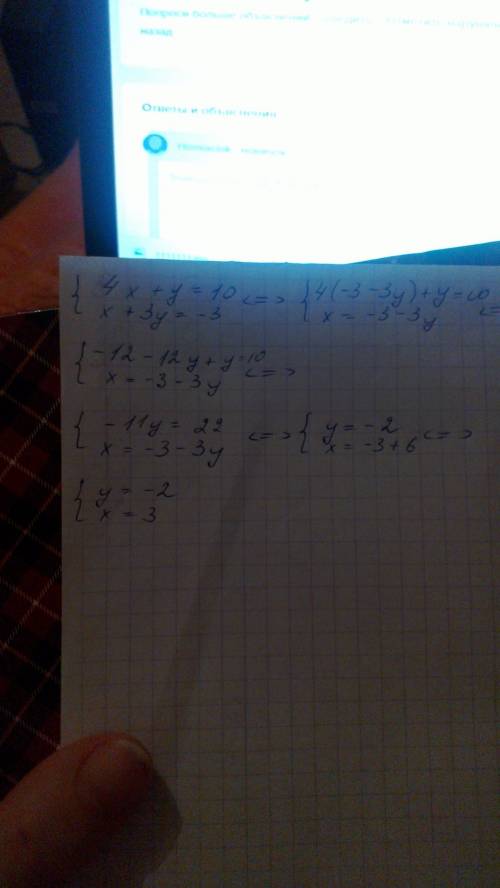 Попроси больше объяснений
назад
Ответы и объяснения
{ 4x + y = 10 <=> { 4(-3-3y)+y=10
x + 3y = -3 x = -3-3y <=
{ -12 - 12y + y = 10
x = -3 - 3y <=>
{ -11y = 22 <=> { y = -2
x = -3 - 3y x = -3 + 6 <=>
{ y = -2
x = 3